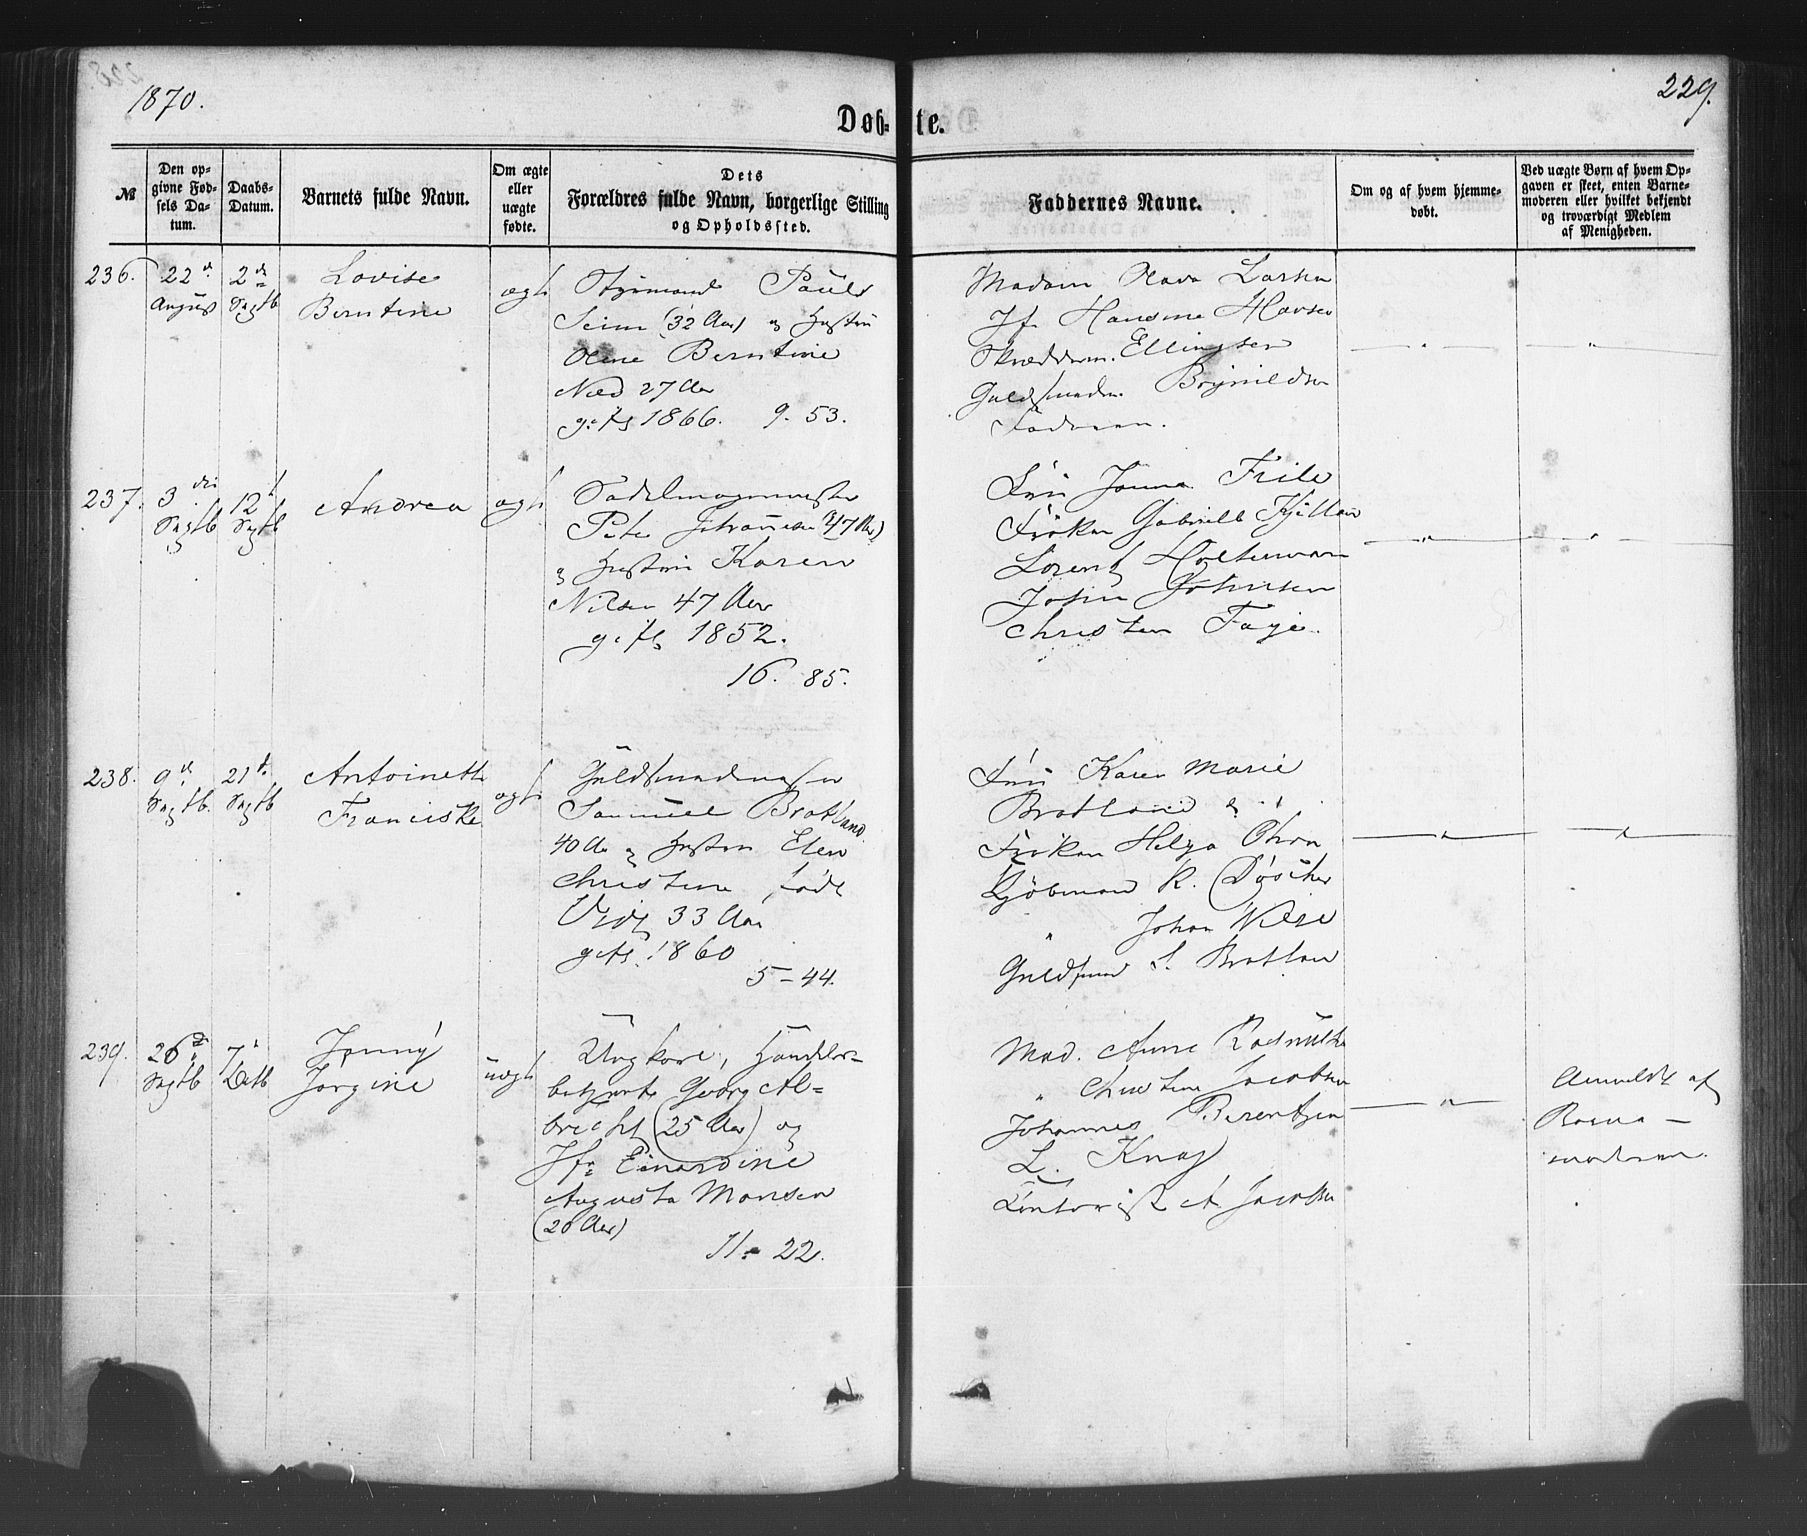 1870.
229.
Døb-
te.
№
Den op-
givne Fød-
sels Da-
tum.
Daabs-
Datum.
Barnets fulde Navn.
Om ægte
eller
uægte
fødte.
Dets
Forældres fulde Navn, borgerlige Stilling
og Opholdssted.
Faddernes Navne.
Om og af hvem hjemme-
døbt.
Ved uægte Børn af hvem Op-
gaven er skeet, enten Barne-
moderen eller hvilket bekjendt
og troværdigt Medlem
af Menigheden.
236.
22
August
2
Septb
Lovise
Berntine
ægte
Styrmand
Seim (32 Aar) og Hustru
Olene Berntine
27 Aar
gifts 1866. 9. 53.
Madam Olava Larsen
Jfr Hansine
Ellingsen
Brynildsen
Faderen.
237.
3
Septb
12
Septb
Andrea
ægte
Sadelmagermester
Peter Johannesen (47 Aar)
og Hustru Karen
Nilsen 47 Aar
gifts 1852.
16. 85.
Fru Friele
Frøken Gabrielle
Lorentz
Johnsen
Christen Faye.
238.
9
Septb.
21
Septb
Antoinette
Franciske
ægte
Samuel Bratland
40 Aar og Hustru Elen
Christine født
33 Aar
gifts 1860
5 - 44.
Fru Karen Marie
Bratland &
Frøken Helga
Kjøbmand R.
" Johan
Guldsmed S. Bratland
239.
26
Septb
7
Octb
Jenny
Jørgine
uægte
Ungkarl, Handels-
betjente Georg Al-
brecht (25 Aar) og
Jfr Einardine
Augusta Monsen
(20 Aar)
11. 22.
Mad. Anne
" Christine Jacobsen
Johannes Berentzen
L. Knag
A. Jacobsen
Anmeldt af
Barne-
moderen.